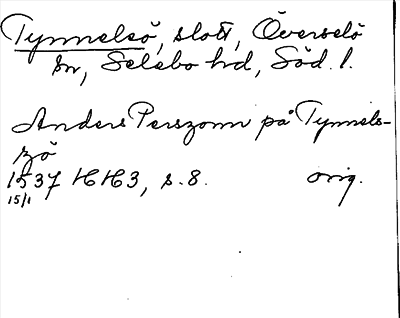 Tynnelsö, slott, Överselö
sn, Selebo hd, Söd. l.
Anders Perszonn på Tynnels-
zö
1537 HH3, s. 8. orig.
15/1